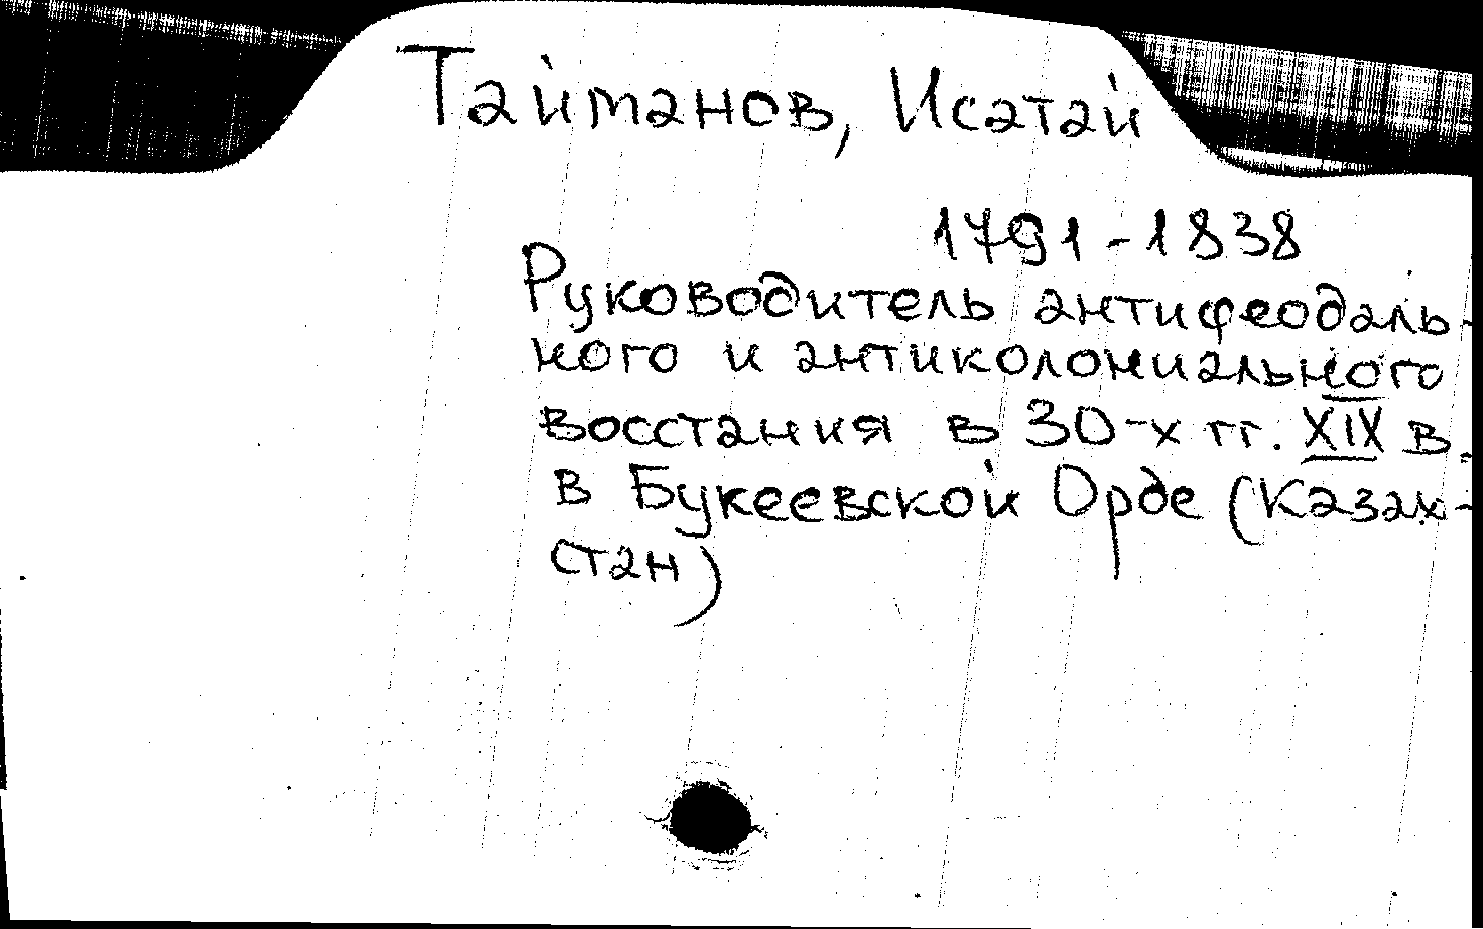 Тайманов, Исатай
1791-1838
Руководитель антифеодаль-
ного и антиколониального
восстания в 30-х гг. XIX в.
в Букеевской Орде (Казах-
стан)